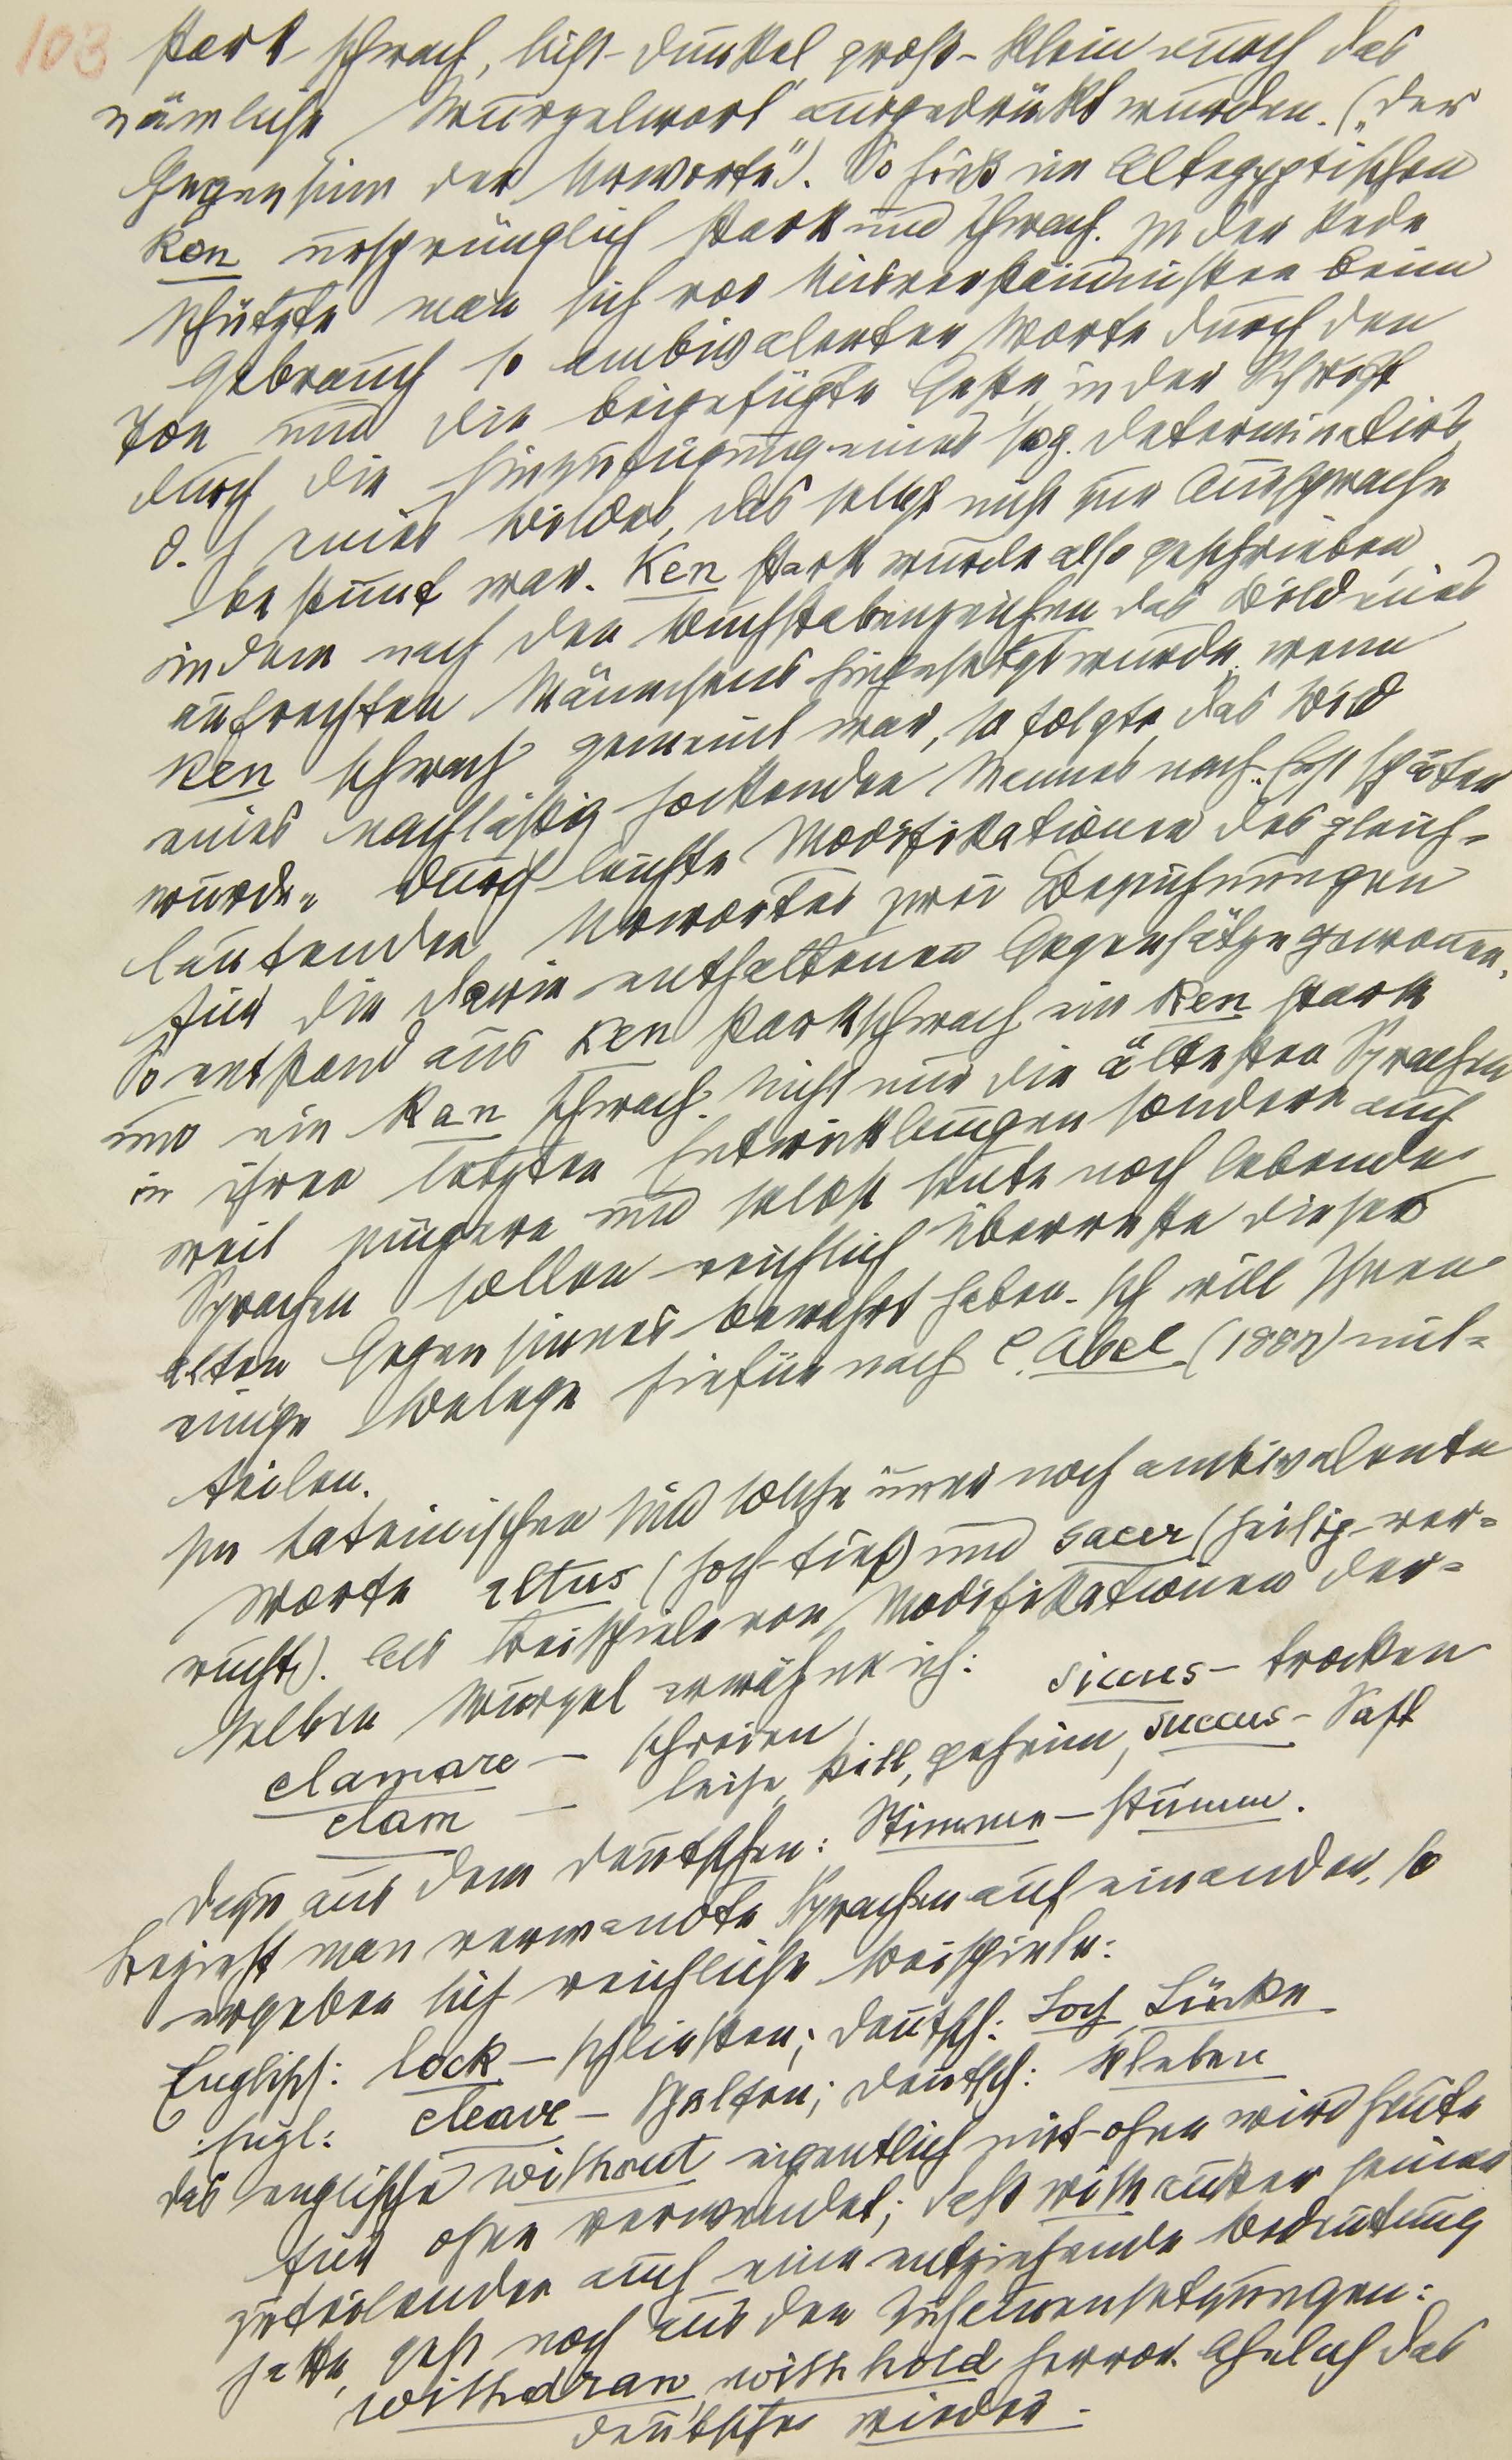 103
stark schwach, licht-dunkel gross-klein durch das
nämliche Wurzelwort ausgedrückt wurden. („der
Gegensinn der Urworte"). So hieß im Altegyptischen
Ken ursprünglich stark und schwach. In der Rede
schützte man sich vor Missverständnissen beim
Gebrauch so ambivalenter Worte durch den
Ton und die beigefügte Geste, in der Schrift
durch die Hinzufügung eines sog. Determinativs,
d. h eines Bildes, das selbst nicht zur Aussprache
bestimmt war. Ken stark wurde also geschrieben
indem nach den Buchstabenzeichen das Bild eines
aufrechten Männchens hingesetzt wurde; wenn
Ken schwach gemeint war, so folgte das Bild
eines nachlässig hockenden Mannes nach. Erst später
wurden durch leichte Modifikationen des gleich-
lautenden Urwortes zwei Bezeichnungen
für die darin enthaltenen Gegensätze gewonnen.
So entstand aus Ken stark schwach ein Ken stark
und ein Kan schwach. Nicht nur die ältesten Sprachen
in ihren letzten Entwicklungen sondern auch
weit jüngere und selbst heute noch lebende
Sprachen sollen reichlich Überreste dieses
alten Gegensinnes bewahrt haben. Ich will Ihnen
einige Belege hiefür nach C. Abel (1884) mit-
teilen.
Im Lateinischen sind solche immer noch ambivalente
Worte altus (hoch-tief) und sacer (heilig-ver-
rucht). Als Beispiele von Modifikationen der-
selben Wurzel erwähne ich:
clamare — schreien, siccus — trocken
clam — leise still, geheim, succus — Saft
dazu aus dem Deutschen: Stimme — stumm.
Bezieht man verwandte Sprachen auf einander, so
ergeben sich reichliche Beispiele:
Englisch: lock — schliessen; deutsch: Loch, Lücke
Engl: cleave — spalten; deutsch: kleben
das englische without eigentlich mit-ohne wird heute
für ohne verwendet; dass with außer seiner
zuteilenden auch eine entziehende Bedeutung
hatte, geht noch aus den Zusammensetzungen:
withdraw, withhold hervor. Ähnlich das
deutsche wieder.